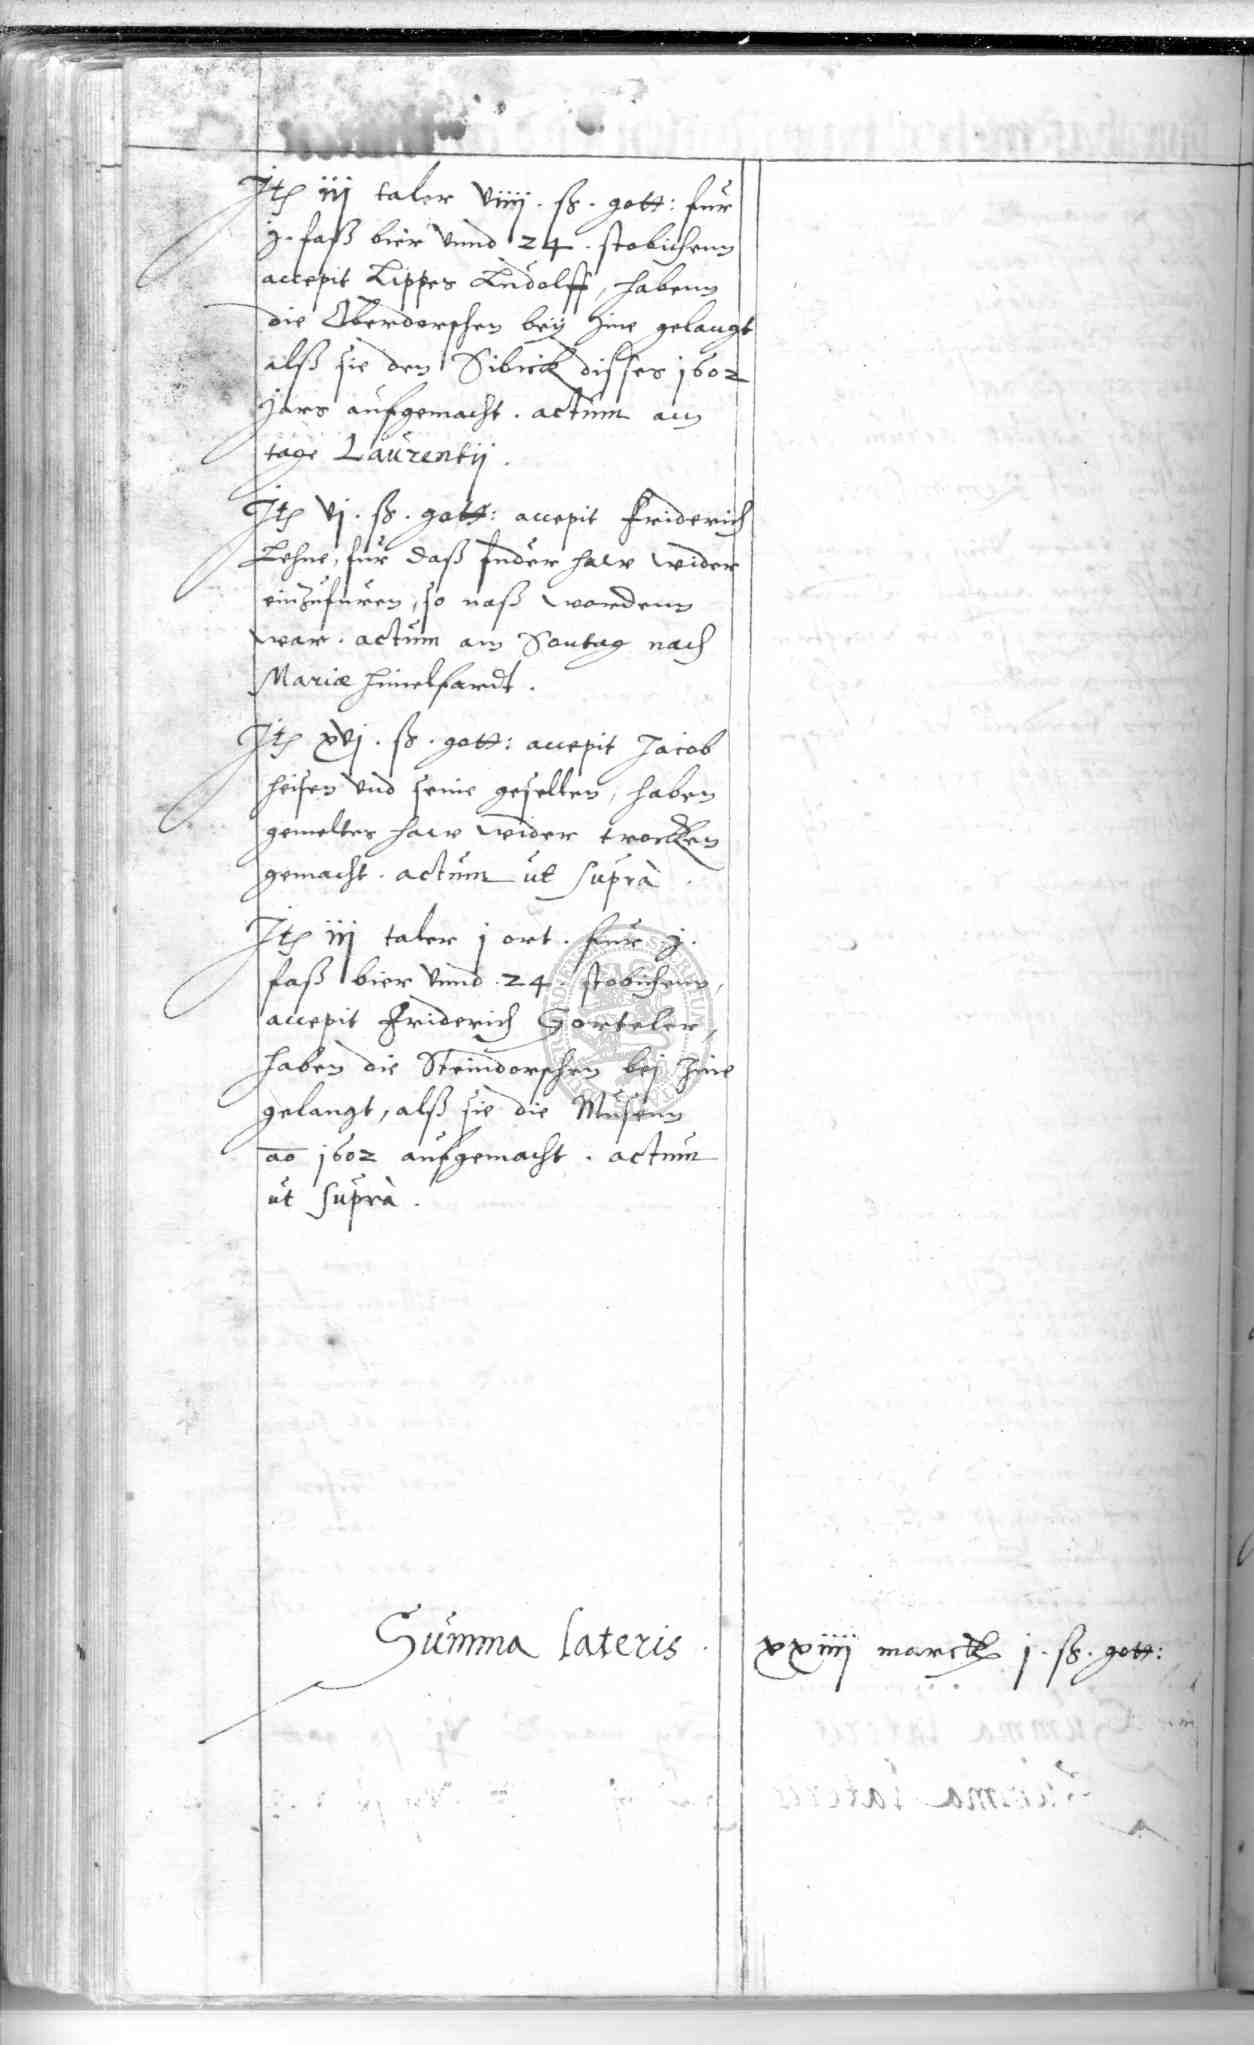 Jtem iij taler viiij . ß . gott: fur
j . faß bier vnnd 24 . stobichenn
accepit Lippes Ludolff, habenn
die Oberdorschen beÿ Jme gelangt
alß sie den Sibick disses 1602
Jars aufgemacht . actum am
tage Laurentij .
Jtem vj . ß . gott: accepit Friderich
Lehne, fur daß fuder haw wider
einzufuren, so naß wordenn
war . actum am Sontag nach
Mariæ himelfardt .
Jtem xvj . ß . gott: accepit Jacob
heisen vnd seine gesellen, haben
gemeltes haw wider trocken
gemacht . actum ut suprà .
Jtem iij taler j ort . fur j .
faß bier vnnd . 24 . stobichenn,
accepit Friderich Sorteler,
haben die Steindorschen bej Jme
gelangt, alß sie die Musenn
ao 1602 aufgemacht . actum
ut suprà .
Summa lateris . xxiiij marck j . ß . gott: